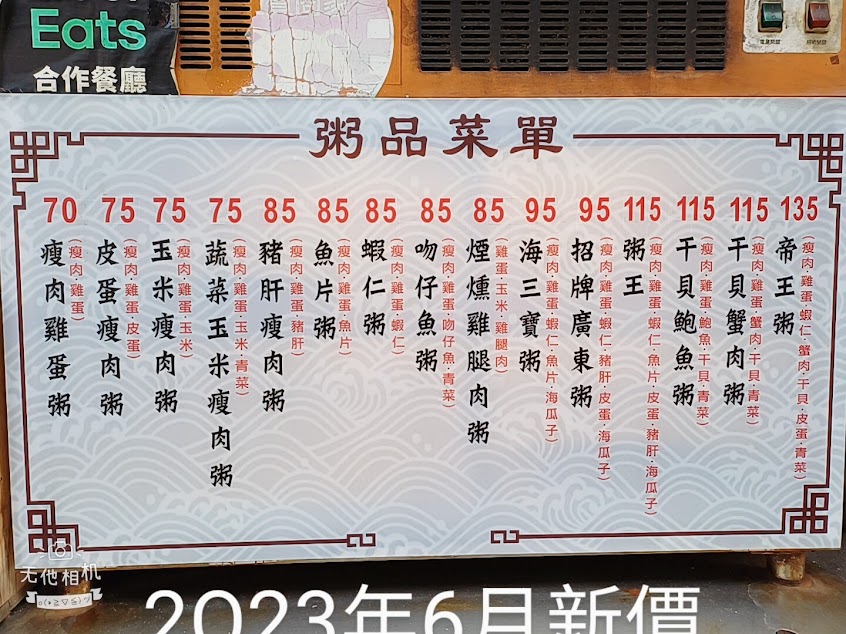 Eats
合作餐廳
電源開關
粥品菜單
70
瘦肉雞蛋粥
(瘦肉·雞蛋)
75
皮蛋瘦肉粥
(瘦肉·雞蛋·皮蛋)
75
玉米瘦肉粥
(瘦肉·雞蛋·玉米)
75
蔬菜玉米瘦肉粥
(瘦肉·雞蛋·玉米·青菜)
85
豬肝瘦肉粥
(瘦肉·雞蛋·豬肝)
85
魚片粥
(瘦肉·雞蛋·魚片)
85
蝦仁粥
(瘦肉·雞蛋·蝦仁)
85
吻仔魚粥
(瘦肉·雞蛋·吻仔魚·青菜)
85
煙燻雞腿肉粥
(雞蛋·玉米·雞腿肉)
95
海三寶粥
(瘦肉·雞蛋·蝦仁·魚片·海瓜子)
95
招牌廣東粥
(瘦肉·雞蛋·蝦仁·豬肝·皮蛋·海瓜子)
115
粥王
(瘦肉·雞蛋·蝦仁·魚片·皮蛋·豬肝·海瓜子)
115
干貝鮑魚粥
(瘦肉·雞蛋·鮑魚·干貝·青菜)
115
干貝蟹肉粥
(瘦肉·雞蛋·蟹肉·干貝·青菜)
135
帝王粥
(瘦肉·雞蛋·蝦仁·蟹肉·干貝·皮蛋·青菜)
无他相机
2023年6月新價